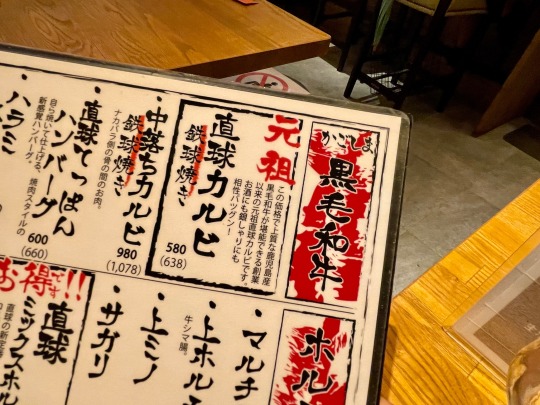 かごしま
黒毛和牛
元祖
直球カルビ
鉄球焼き
この価格で上質な鹿児島産
黒毛和牛が堪能できる創業
以来の元祖直球カルビです。
お酒にも銀しゃりにも
相性バツグン！
580
(638)
・中落ちカルビ
鉄球焼き
ナカバラ側の骨の間のお肉。
980
(1,078)
・直球てっぱん
ハンバーグ
自ら焼いて仕上げる、焼肉スタイルの
新感覚ハンバーグ。
600
(660)
・ハラミ
ホル
・マルチ
・上ホル
牛シマ腸。
・上ミノ
・サガリ
お得です!!
直球
ミックスホル
直球の新定番